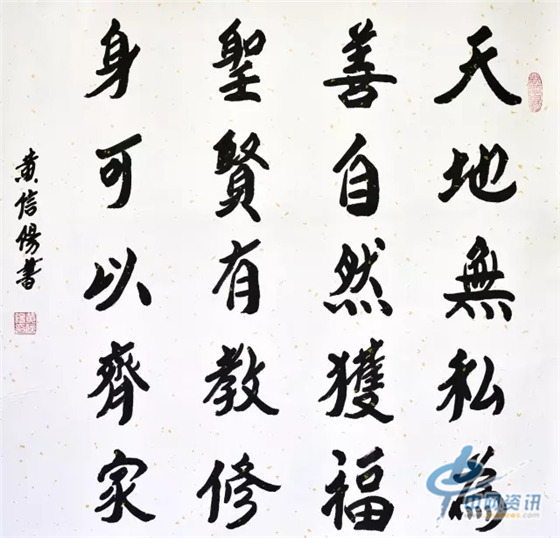 天地無私為
善自然獲福
聖賢有教修
身可以齊家
黄信陽書
中网资讯